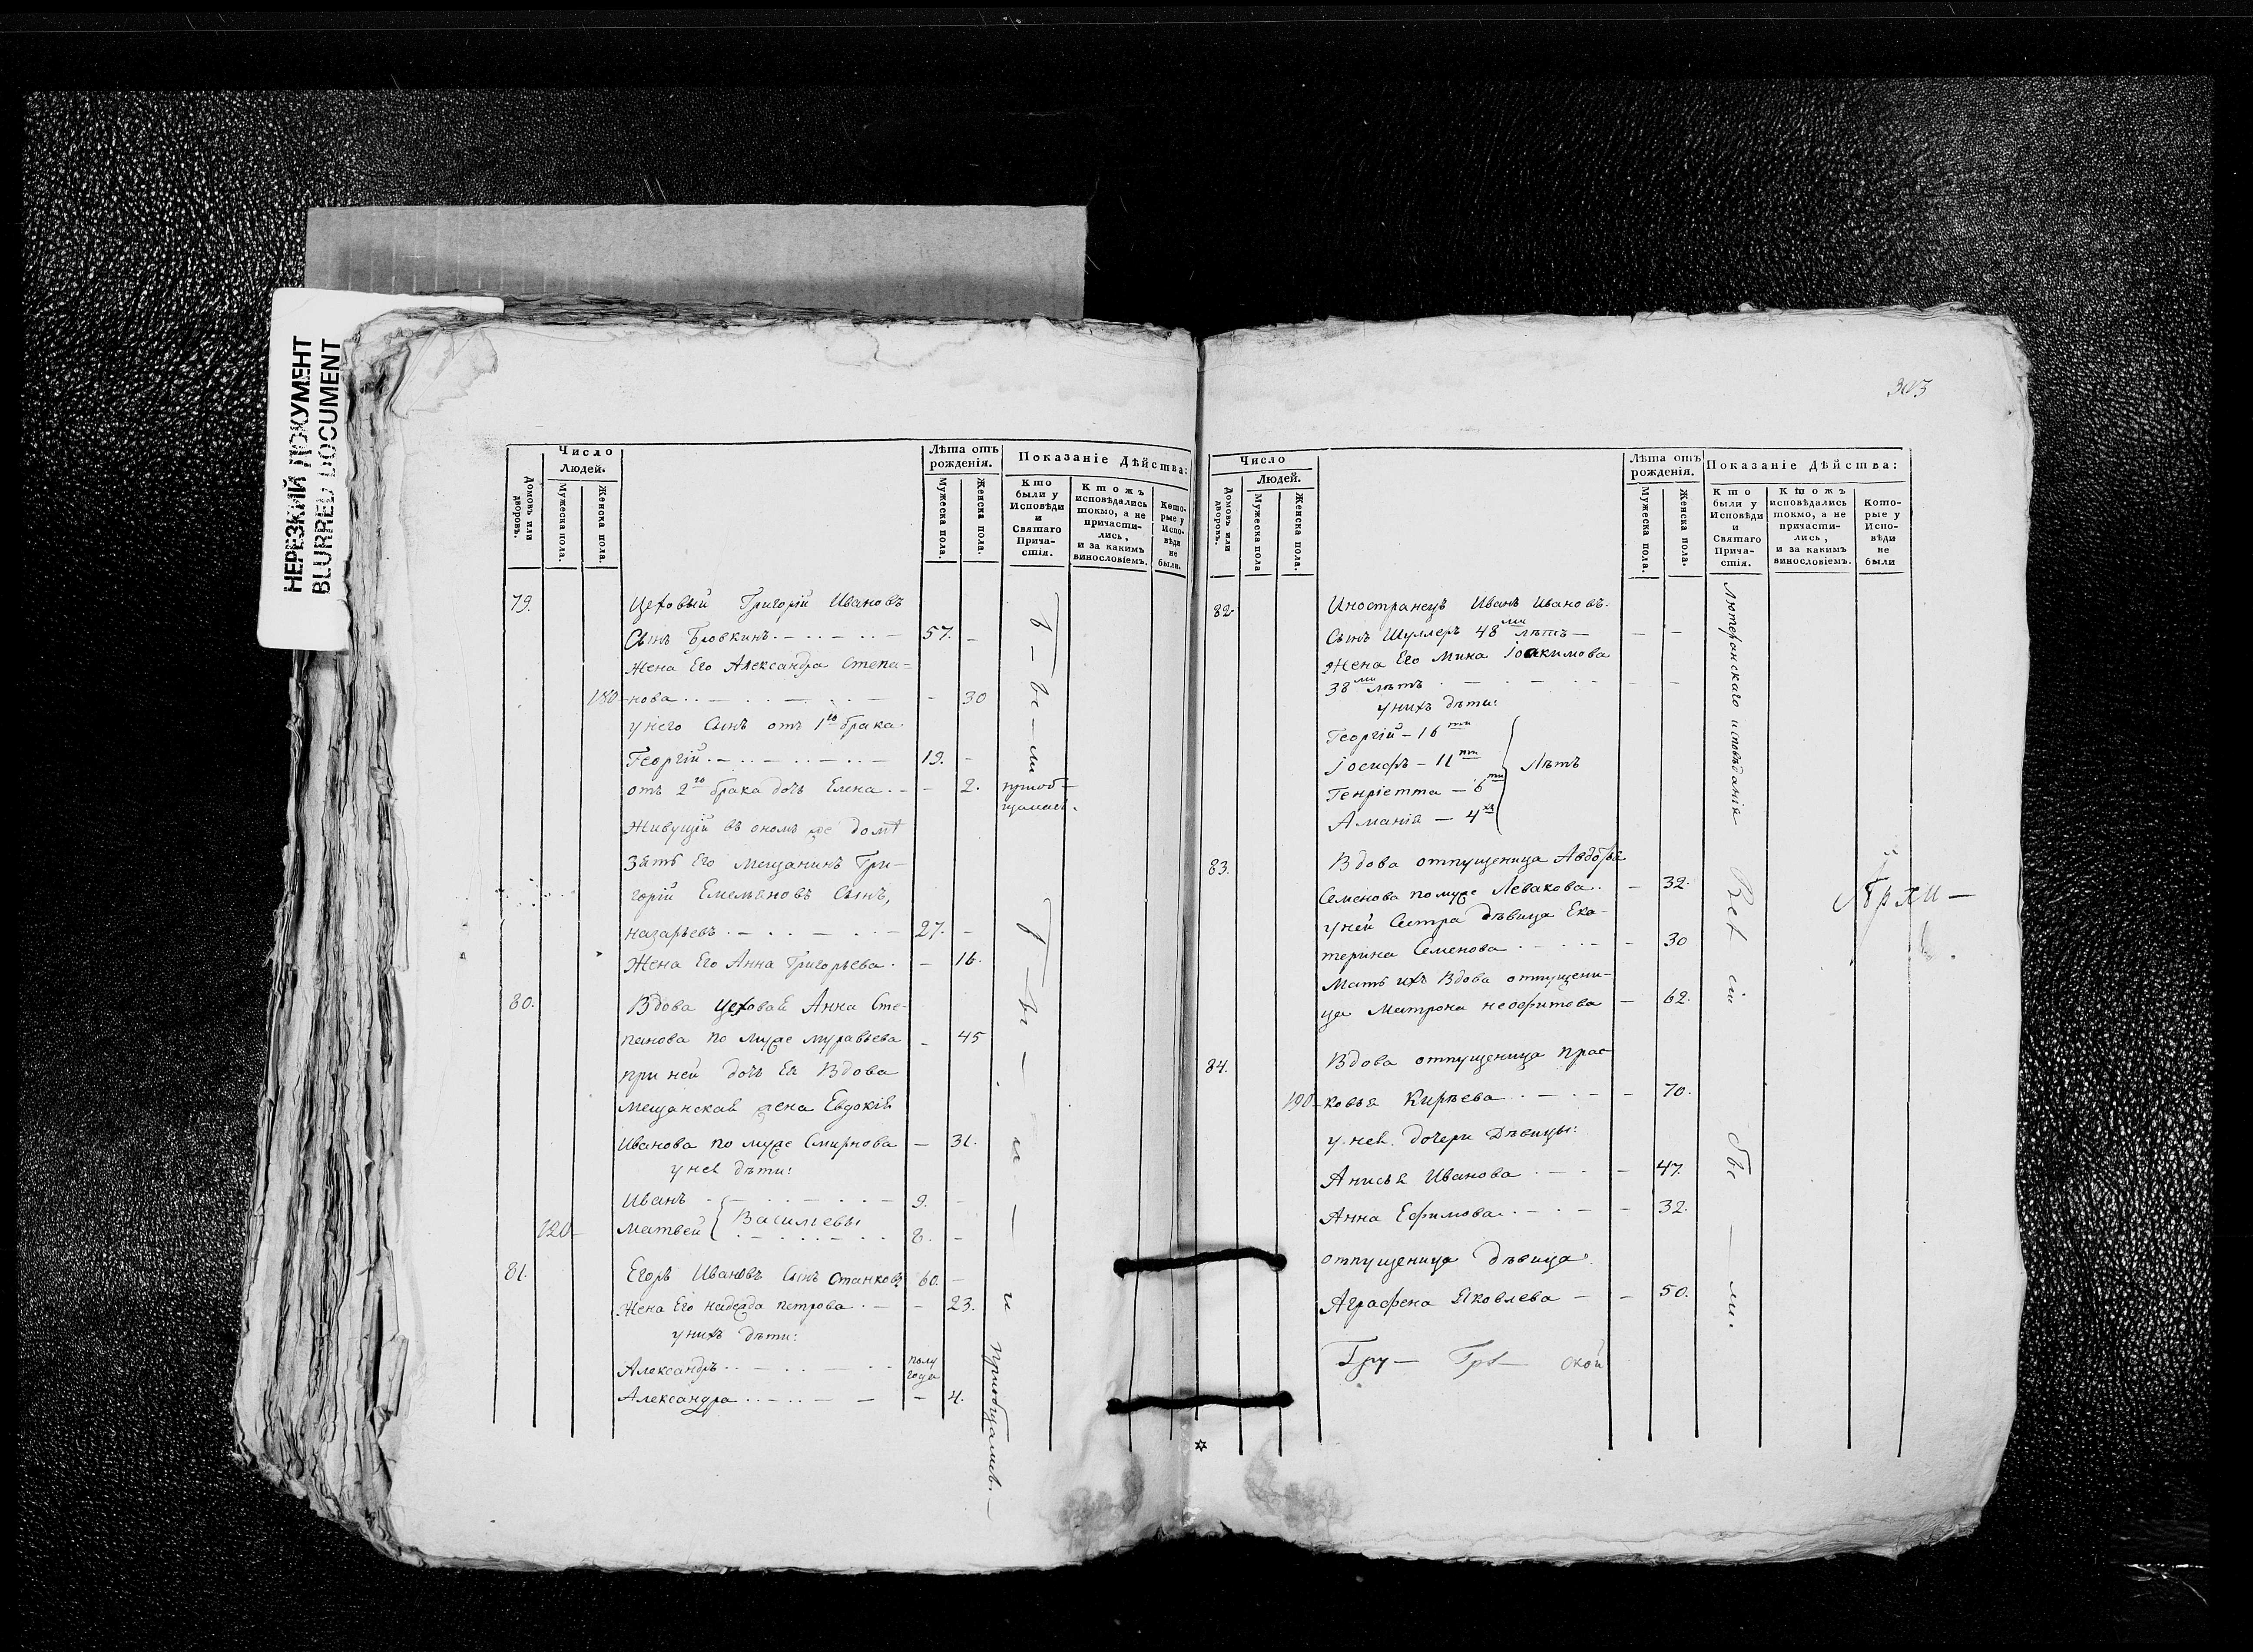 НЕРЕЗКИЙ ДОКУМЕНТ
BLURRED DOCUMENT
Число
Людей.
Домовъ или дворовъ.
Мужеска пола.
Женска пола.
Лѣта отъ рожденія.
Мужеска пола.
Женска пола.
Показаніе Дѣйства:
Кто были у Исповѣди и Святаго Причастія.
Ктожъ исповѣдались токмо, а не причастились, и за какимъ винословіемъ.
Которые у Исповѣди не были.
79. Цеховый Григорій Ивановъ
Сынъ 57. –
Жена Его Александра Степа=
180 нова – 30
у него Сынъ отъ 1го брака
Георгій 19. –
отъ 2го брака дочь Елена – 2.
приоб–
щалась.
Живущій въ ономъ же домѣ
Зять Его Мещанинъ Гри–
горій Емельяновъ Сынъ,
Назарьевъ 27. –
Жена Его Анна Григорьева – 16.
80. Вдова Цеховая Анна Сте–
панова по мужѣ Муравьева – 45
при ней дочь Ея Вдова
Мещанская жена Евдокія
Иванова по мужѣ Смирнова – 31.
у нея дѣти:
Иванъ 9. –
Васильевы
120 Матвей 8. –
81. Егоръ Ивановъ Сынъ Станковъ 60. –
Жена Его Надежда Петрова – 23.
у нихъ дѣти:
Александръ полу года
Александра – 4.
б – ы – ли
приобщались –
303
Число
Людей.
Домовъ или дворовъ.
Мужеска пола
Женска пола.
Лѣта отъ рожденія.
Мужеска пола.
Женска пола.
Показаніе Дѣйства:
Кто были у Исповѣди и Святаго Причастія.
Ктожъ исповѣдались токмо, а не причастились, и за какимъ винословіемъ.
Которые у Исповѣди не были
82 Иностранецъ Иванъ Ивановъ
Сынъ Шуллеръ 48ми лѣтъ – – –
Жена Его Мина Іоакимова
38ми лѣтъ – –
у нихъ дѣти:
Георгій – 16ти
Іосифъ – 11ти Лѣтъ
Генріетта – 6ти
Аманія – 4хъ
Лютеранскаго исповѣданія
83. Вдова отпущеница Авдотья
Семенова по мужѣ Левакова – 32.
у ней Сестра дѣвица Ека–
терина Семенова – 30
Мать ихъ Вдова отпущени–
ца Матрона Неофитова – 62.
84. Вдова отпущеница Прас
190 ковья Кирѣева – 70.
у нея дочери Дѣвицы:
Анисья Иванова – 47
Анна Ефимова – 32.
отпущеница дѣвица
Аграфена Яковлева – – 50.